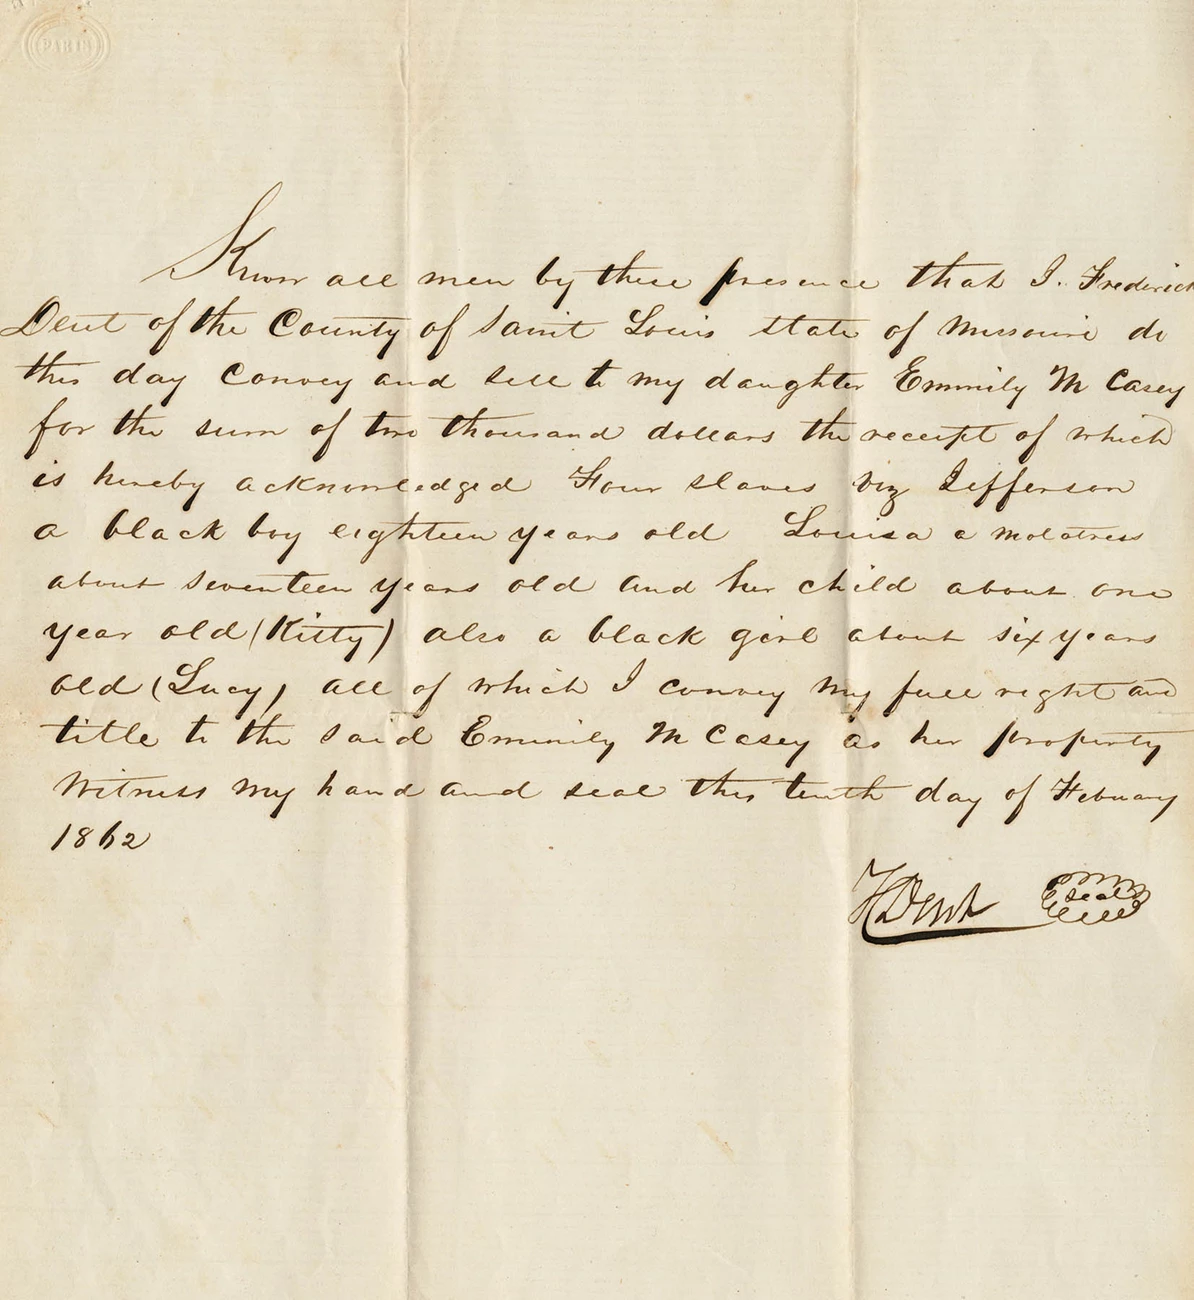 PARIS
Know all men by these presence that I. Frederick
Dent of the County of Saint Louis state of Missouri do
this day Convey and sell to my daughter Emmily M Casey
for the sum of two thousand dollars the receipt of which
is hereby acknowledged Four slaves viz Jefferson
a black boy eighteen years old Louisa a molatress
about seventeen years old and her child about one
year old (Kitty) also a black girl about six years
old (Lucy) all of which I convey my full right and
title to the said Emmily M Casey as her property
Witness my hand and seal this tenth day of Febuary
1862
F Dent seal